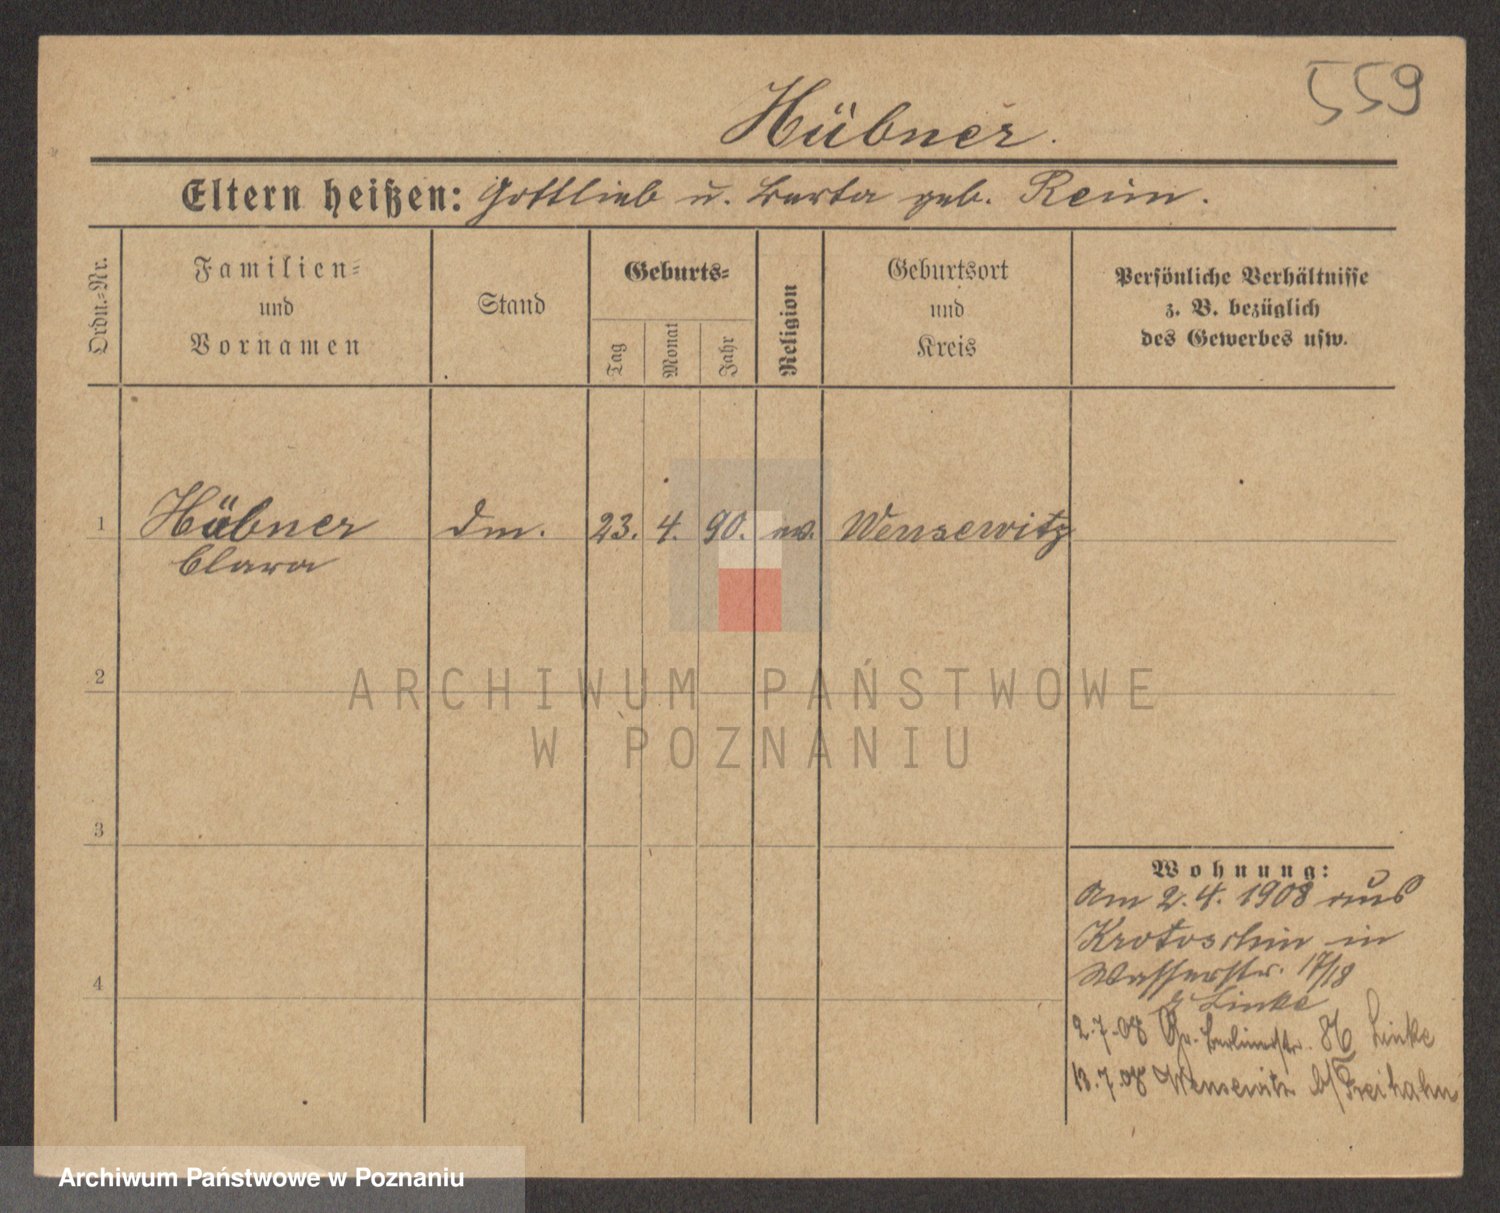 559
Hübner.
Eltern heißen: Gottlieb u. Berta geb. Reim.
Ordn.-Nr.
Familien-
und
Vornamen
Stand
Geburts-
Tag
Monat
Jahr
Religion
Geburtsort
und
Kreis
Persönliche Verhältnisse
z. B. bezüglich
des Gewerbes usw.
1 Hübner Dm. 23. 4. 90. ev. Wensewitz
Clara
2
3
4
Wohnung:
Am 2.4.1908 aus
Krotoschin in
Wasserstr. 17/18
Linke
2.7.08 Gr. Berlinerstr. 86 Linke
13.7.08 Wensewitz b/Freihahn
ARCHIWUM PAŃSTWOWE
W POZNANIU
Archiwum Państwowe w Poznaniu